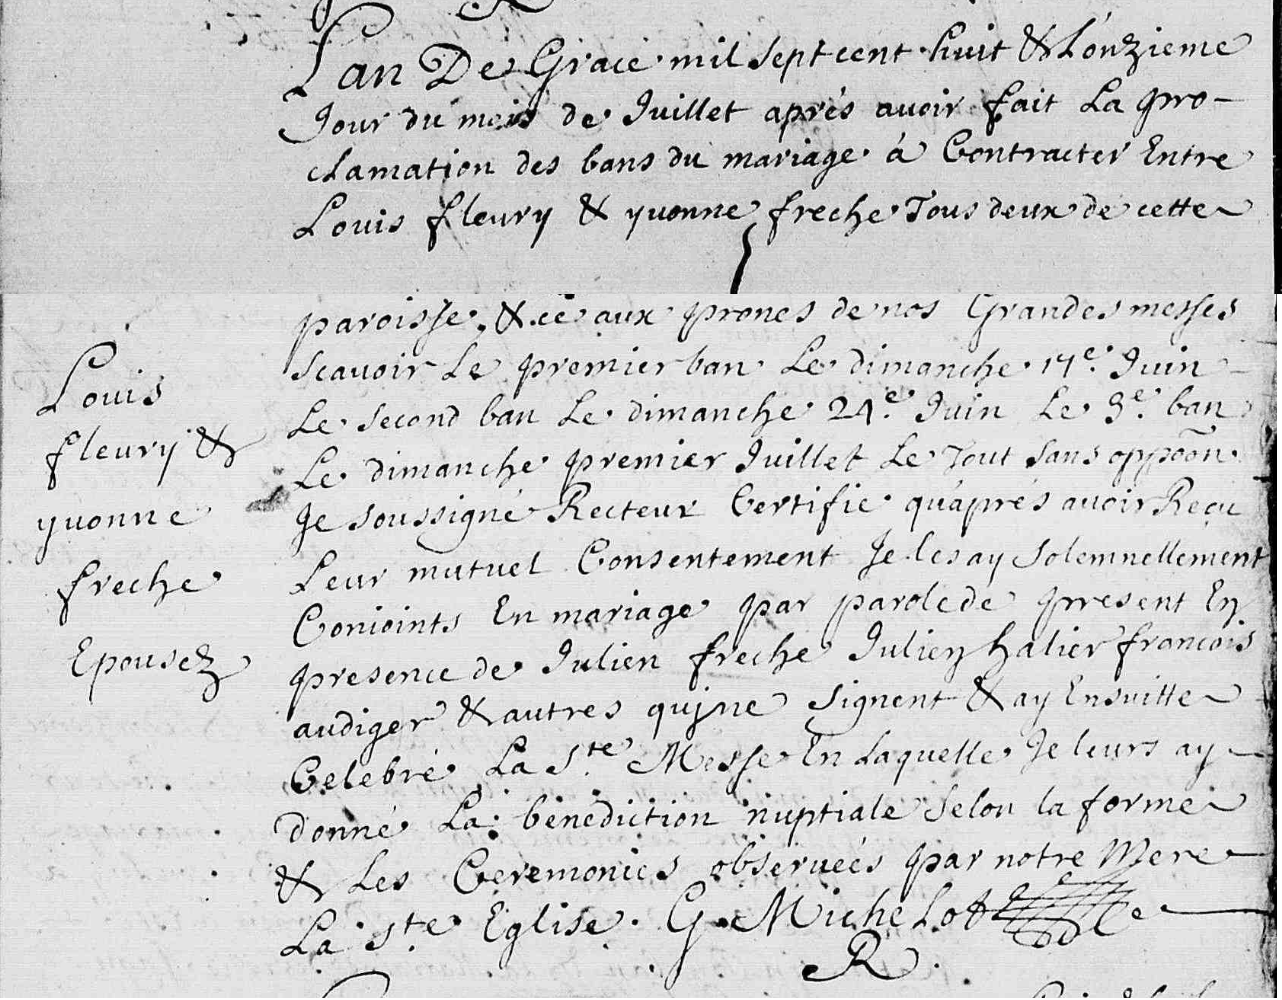 Lan De Grace mil sept cent huit & Lónzieme
Jour du mois de Juillet aprés avoir fait La pro-
clamation des bans du mariage á Contracter Entre
Louis fleury & yvonne freche Tous deux de cette
paroisse, & ce aux prones de nos Grandes messes
scavoir Le premier ban Le dimanche 17e. Juin
Le second ban Le dimanche 24e. Juin Le 3e. ban
Le dimanche premier Juillet Le Tout sans oppõon
Je soussigné Recteur Certifie qu'aprés avoir Reçu
Leur mutuel Consentement Je les ay solemnellement
Conioints En mariage par parole de present En
presence de Julien freche Julien halier francois
audiger & autres qui ne signent & ay Ensuitte
Celebré La Ste Messe En Laquelle Je leurs ay
donné La benediction nuptiale selon la forme
& Les Ceremonies observées par notre Mere
La ste Eglise. G. Michelot
R
Louis
fleury &
yvonne
freche
Epousez